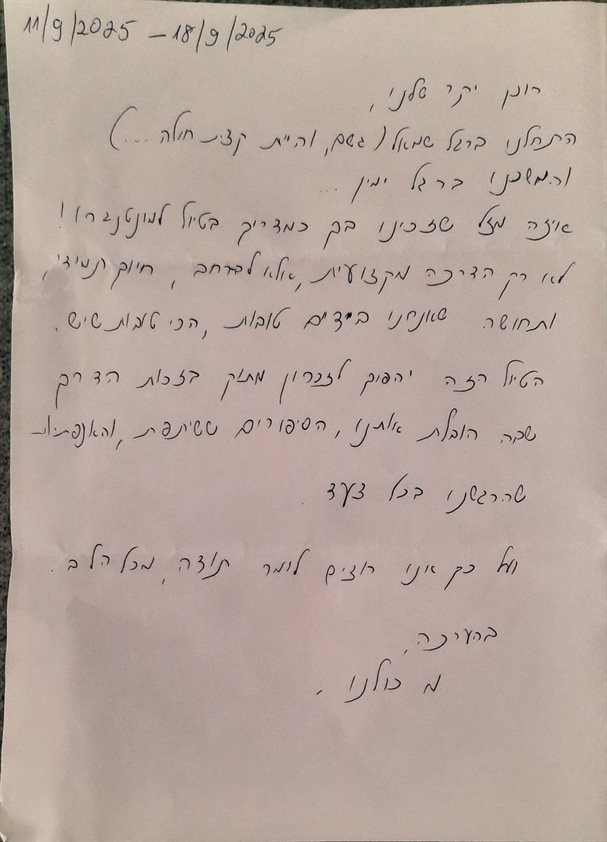 11/9/2025 – 18/9/2025
רונן יקר שלנו,
התחלנו ברגל שמאל (גשם, והיית קצת חולה ...)
והמשכנו ברגל ימין ...
איזה מזל שזכינו בך כמדריך בטיול למונטנגרו!
לא רק הדרכה מקצועית, אלא לב רחב, חיוך תמידי,
ותחושה שאנחנו בידיים טובות, הכי טובות שיש.
הטיול הזה יהפוך לזכרון מתוק בזכות הדרך
שבה הובלת אותנו, הסיפורים ששיתפת, והאכפתיות
שהרגשנו בכל צעד
ועל כך אנו רוצים לומר תודה, מכל הלב.
בהערכה,
מ כולנו.